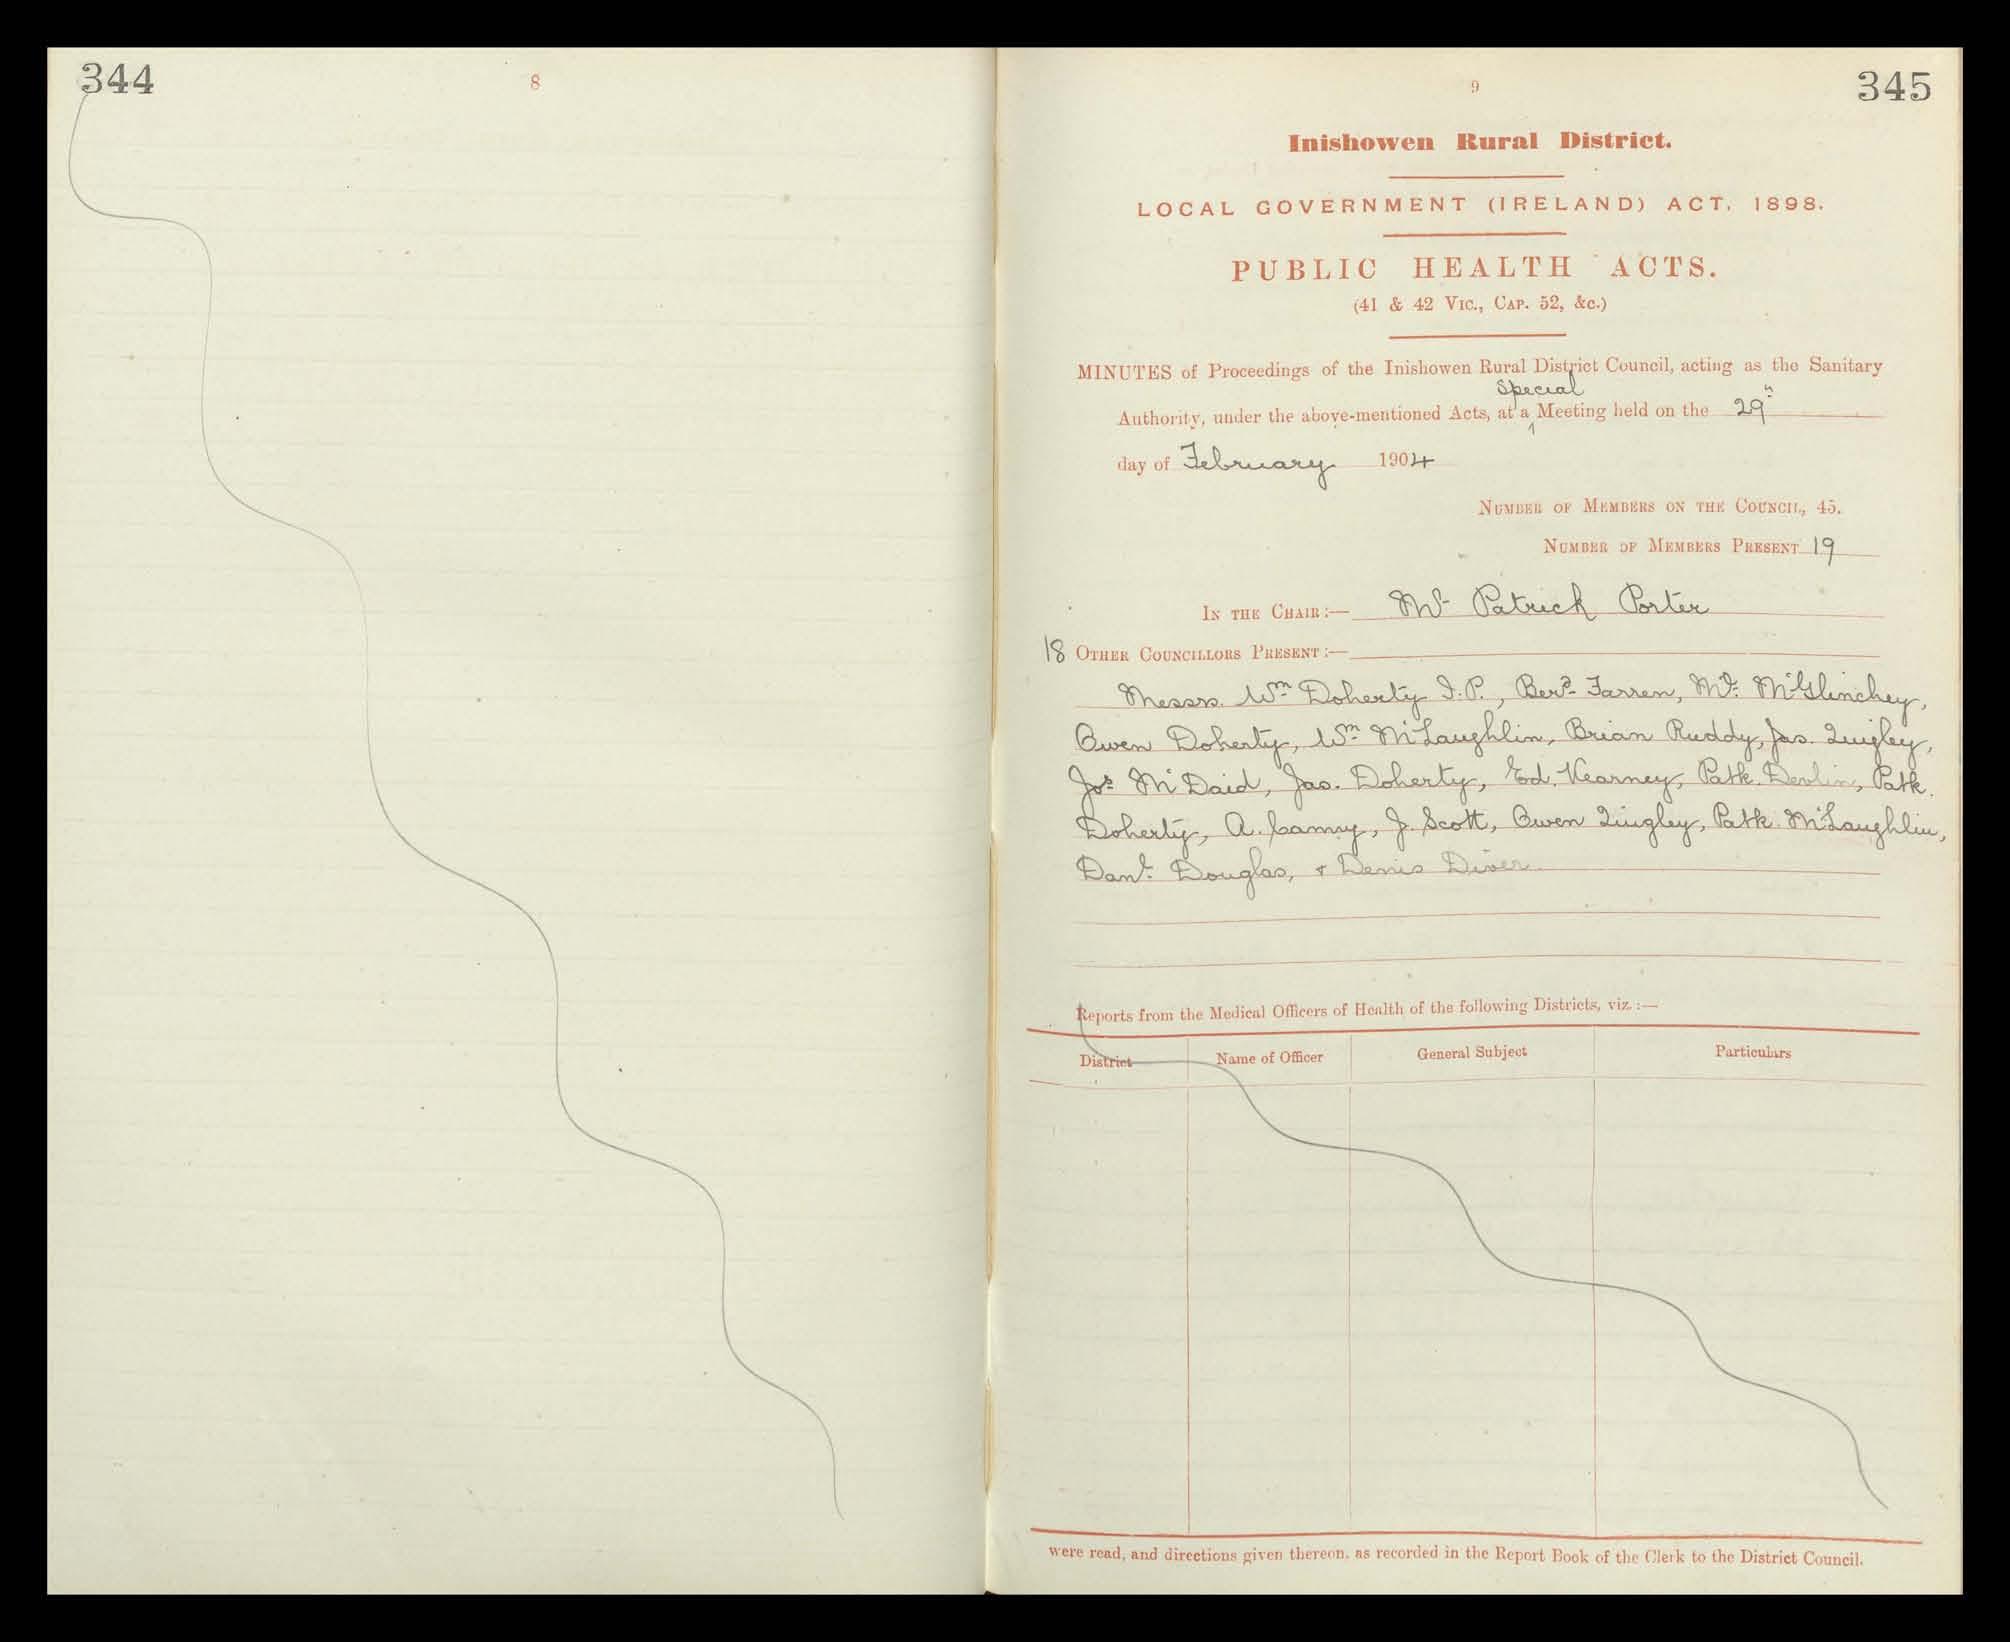 344
8
9
345
Inishowen Rural District.
LOCAL GOVERNMENT (IRELAND) ACT, 1898.
PUBLIC HEALTH ACTS.
(41 & 42 Vic., Cap. 52, &c.)
MINUTES of Proceedings of the Inishowen Rural District Council, acting as the Sanitary
Special
Authority, under the above-mentioned Acts, at a Meeting held on the 29th
day of February 1904
Number of Members on the Council, 45.
Number of Members Present 19
In the Chair:— Mr Patrick Porter
18 Other Councillors Present:—
Messrs. Wm Doherty J.P., Berd Farren, Ml. McGlinchey,
Owen Doherty, Wm McLaughlin, Brian Ruddy, Jas. Quigley,
Jos McDaid, Jas. Doherty, Ed. Kearney, Patk. Devlin, Patk.
Doherty, A. Canny, J. Scott, Owen Quigley, Patk. McLaughlin,
Danl. Douglas, & Denis Diver
Reports from the Medical Officers of Health of the following Districts, viz.:—
District Name of Officer General Subject Particulars
were read, and directions given thereon, as recorded in the Report Book of the Clerk to the District Council.